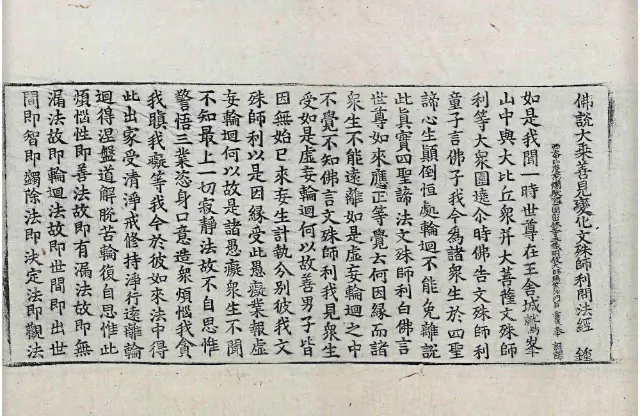 佛說大乘善見變化文殊師利問法經 鍾
如是我聞一時世尊在王舍城鷲峯
山中與大比丘衆并大菩薩文殊師
利等大衆圍遶尒時佛告文殊師利
童子言佛子我今爲諸衆生於四聖
諦心生顛倒恒處輪迴不能免離說
此眞實四聖諦法文殊師利白佛言
世尊如來應正等覺云何因緣而諸
衆生不能遠離如是虛妄輪迴之中
不覺不知佛言文殊師利我見衆生
受如是虛妄輪迴何以故善男子皆
因無始已來妄生計執分別彼我文
殊師利以是因緣受此愚癡業報虛
妄輪迴何以故是諸愚癡衆生不聞
不知最上一切寂靜法故不自思惟
警悟三業恣身口意造衆煩惱我貪
我瞋我癡等我今於彼如來法中得
此出家受清淨戒修持淨行遠離輪
迴得涅盤道解脫苦輪復自思惟此
煩惱性即善法故即有漏法故即無
漏法故即輪迴法故即世間即出世
間即智即蠲除法即決定法即觀法